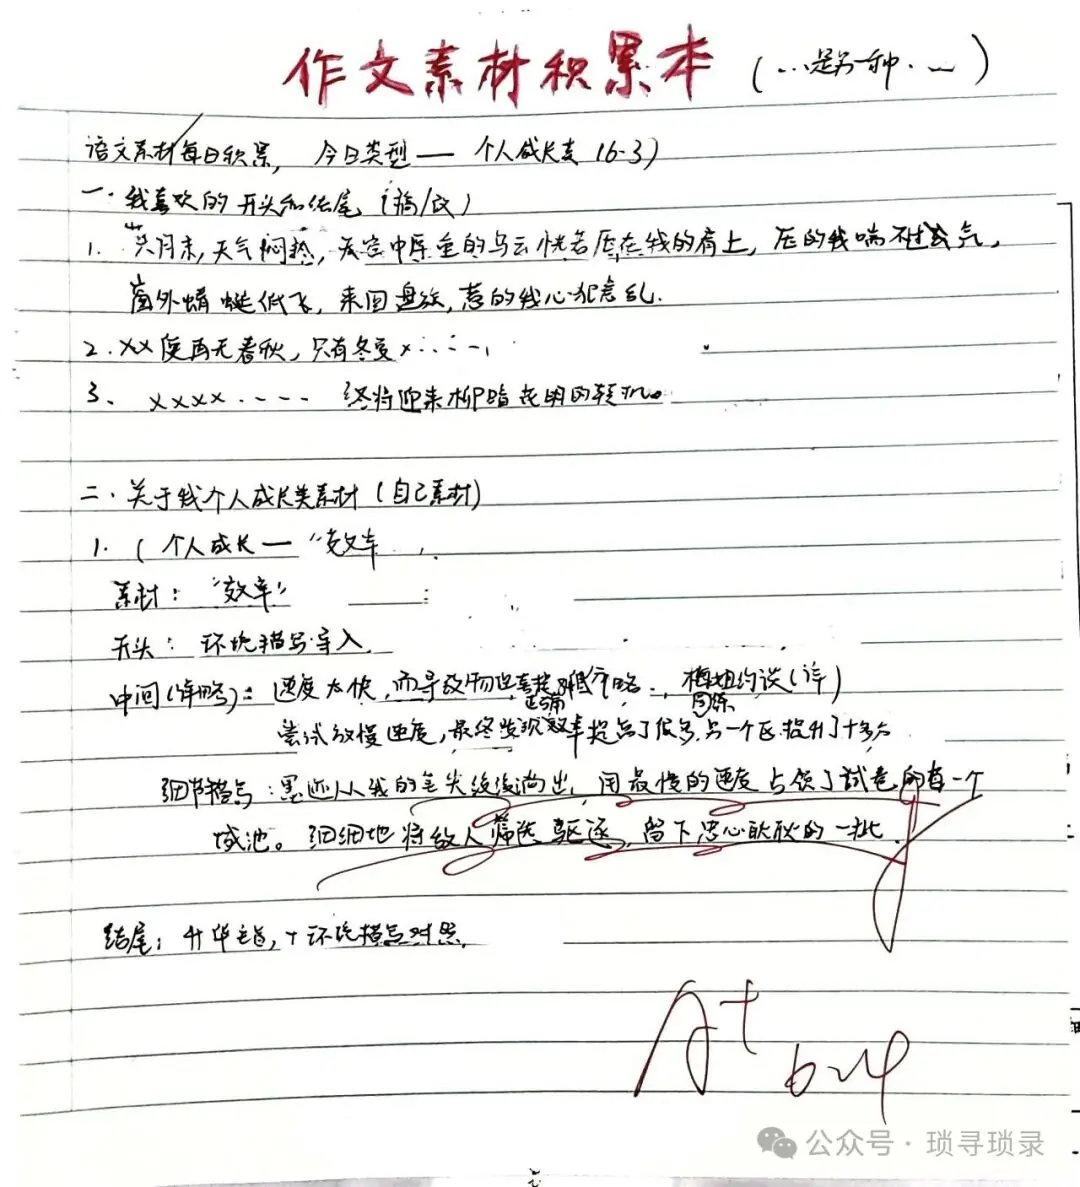 作文素材积累本 (...是另一种...)
语文素材每日积累, 今日类型— 个人成长类 (6-3)
一.我喜欢的开头和结尾 (摘/改)
1. 六月末,天气闷热,天空中厚重的乌云恍若压在我的肩上,压的我喘不过气,
窗外蜻蜓低飞,来回盘旋,惹的我心犯意乱.
2.××度再无春秋,只有冬夏×......
3、××××.... 终将迎来柳暗花明的转机。
二.关于我个人成长类素材(自己素材)
1. (个人成长— "效率
素材: "效率"
开头: 环境描写导入
中间(详略): 速度太快,而导致物理 略 约谈(详)
尝试放慢速度,最终发现效率提高了很多.另一个区.提升了十多分
细节描写:墨迹从我的笔尖缓缓淌出,用最慢的速度占领了试卷的每一个
城池。细细地将敌人筛选驱逐,留下忠心耿耿的一批.
结尾:升华主旨,+环境描写对照.
A+
6.4
公众号·琐寻琐录